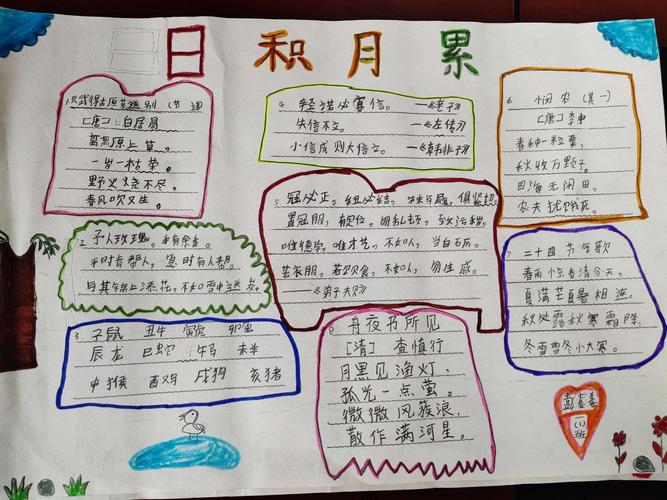 日积月累
1、赋得古原草送别（节选）
[唐]白居易
离离原上草。
一岁一枯荣。
野火烧不尽、
春风吹又生。
2、予人玫瑰，手有余香。
平时肯帮人，急时有人帮。
与其锦上添花，不如雪中送炭。
3、子鼠 丑牛 寅虎 卯兔
辰龙 巳蛇 午马 未羊
申猴 酉鸡 戌狗 亥猪
4、轻诺必寡信。—《老子》
失信不立。—《左传》
小信成则大信立。—《韩非子》
5、冠必正，纽必结，袜与履，俱紧切。
置冠服，有定位，勿乱顿，致污秽。
唯德学，唯才艺，不如人，当自砺。
若衣服，若饮食，不如人，勿生戚。
——《弟子规》
6、悯农（其一）
[唐]李申
春种一粒粟，
秋收万颗子。
四海无闲田。
农夫犹饿死。
7、二十四节气歌
春雨惊春清谷天，
夏满芒夏暑相连。
秋处露秋寒霜降，
冬雪雪冬小大寒。
8、舟夜书所见
[清] 查慎行
月黑见渔灯，
孤光一点萤。
微微风簇浪，
散作满河星。
一(1)
班